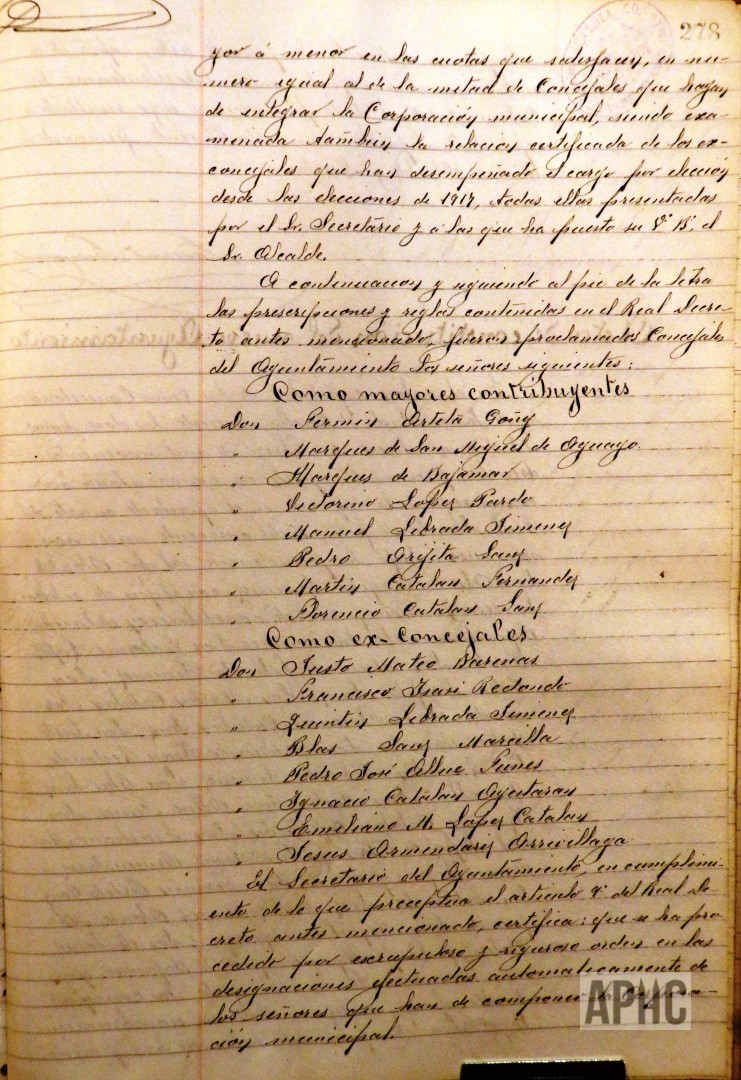 278
yor á menor en las cuotas que satisfacen, en nu-
mero igual al de la mitad de Concejales que hayan
de integrar la Corporación municipal, siendo exa-
menada tambien la relacion certificada de los ex-
concejales que han desempeñado el cargo por elección
desde las elecciones de 1917, todas ellas presentadas
por el Sr. Secretario y á las que ha puesto su Vº Bº el
Sr. Alcalde.
A continuacion y siguiendo al pie de la letra
las prescripciones y reglas contenidas en el Real Decre-
to antes mencionado, fueron proclamados Concejales
del Ayuntamiento los señores siguientes:
Como mayores contribuyentes
Don Fermin Arteta Goñy
" Marques de San Miguel de Aguayo
" Marques de Bajamar
" Victorino Lopez Pardo
" Manuel Librada Jimenez
" Pedro Orijita Sanz
" Martin Catalan Fernandez
" Florencio Catalan Sanz
Como ex-Concejales
Don Justo Mateo Barenas
" Francisco Isasi Redondo
" Quintin Librada Jimenez
" Blas Sanz Marcilla
" Pedro José Allue Funes
" Ignacio Catalan Ayestaran
" Emiliano M. López Catalan
" Jesus Armendariz Arrivillaga
El Secretario del Ayuntamiento, en cumplimi-
ento de lo que preceptua el articulo 4º del Real De-
creto antes mencionado, certifica: que se ha pro
cedido por escrupuloso y riguroso orden en las
designaciones efectuadas automaticamente de
los señores que han de componer la Corpora-
ción municipal.
APHC